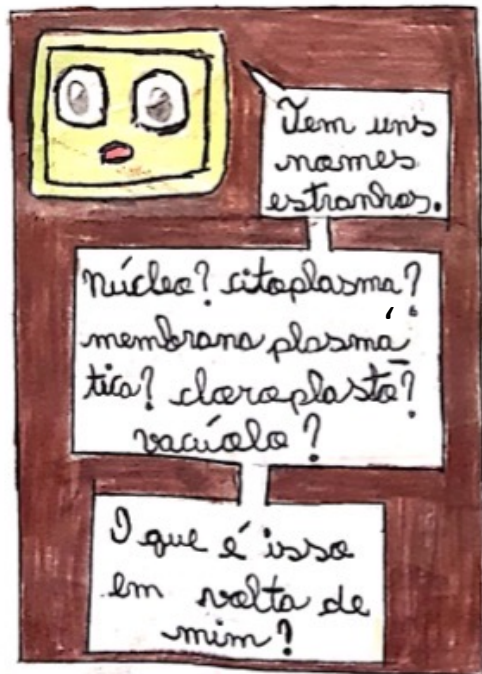 Tem uns
nomes
estranhos.
Núcleo? citoplasma?
membrana plasmá
tica? cloroplasto?
vacúolo?
O que é isso
em volta de
mim?